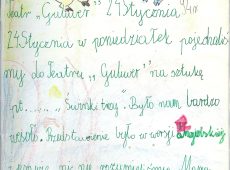 Teatr „Guliwer" 24 Stycznia 94r
24 Stycznia w poniedziałek pojechali
my do teatru „Guliwer" na sztukę
pt. .... „Świnki trzy". Było nam bardzo
wesoło. Przedstawienie było w wersji angielskiej
nic nie